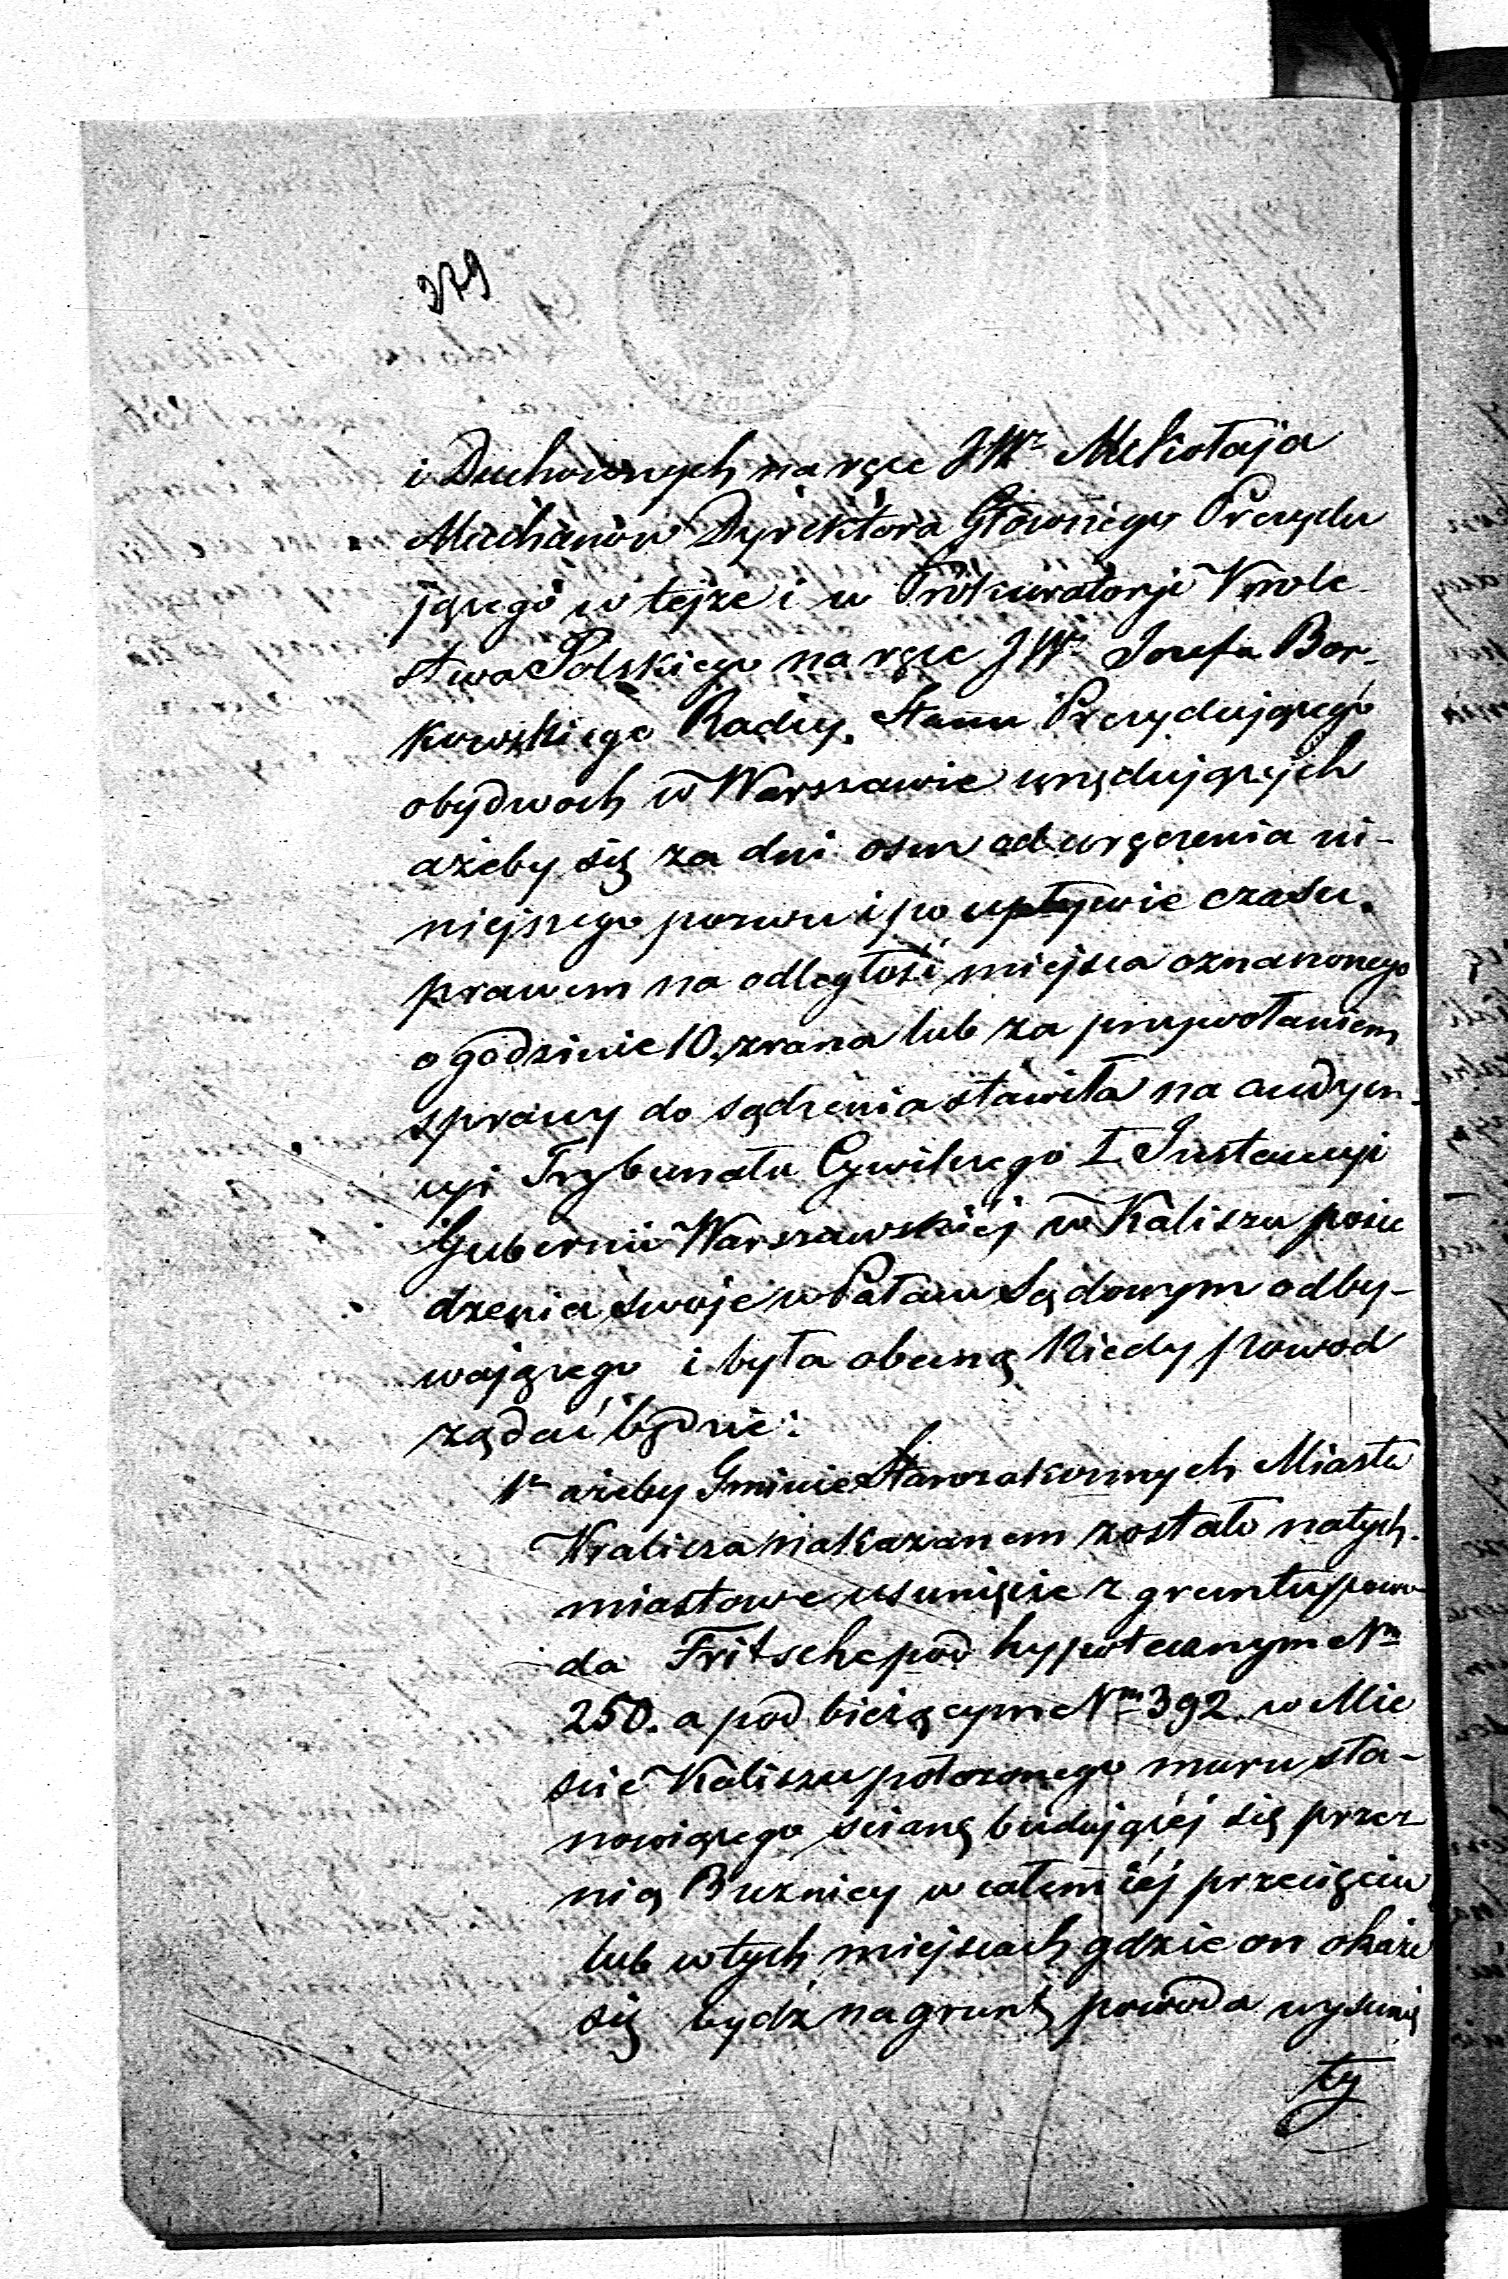 379
i Duchownych na ręce JWº Mikołaja
Muchanów Dyrektora Głównego Prezydu
jącego w tejże i w Prokuratorji Króle-
stwa Polskiego na ręce JWº Jozefa Bor-
kowskiego Radzy Stanu Prezydującego
obydwoch w Warszawie urzędujących
ażeby się za dni osm od wręczenia ni-
niejszego pozwu i po upływie czasu
prawem na odległość miejsca oznaczonego
o godzinie 10. zrana lub za przywołaniem
sprawy do sądzenia stawiła na audyen-
cyi Trybunału Cywilnego I Instancyi
Gubernii Warszawskiéj w Kaliszu posie
dzenia swoje w Pałacu Sądowym odby-
wającego i była obecną kiedy powod
żądać będzie:
1º ażeby Gminie Starozakonnych Miasta
Kalisza nakazanem zostało natych-
miastowe usunięcie z gruntu powo-
da Fritsche pod hypotecznym Nm
250. a pod bieżącym Nm 392. w Mie
scie Kaliszu położonego muru sta-
nowiącego ścianę budującéj się przez
nią Buznicy w całem iéj przecięciu
lub w tych miejscach gdzie on okaże
się bydź na grunt powoda wysunię
ty